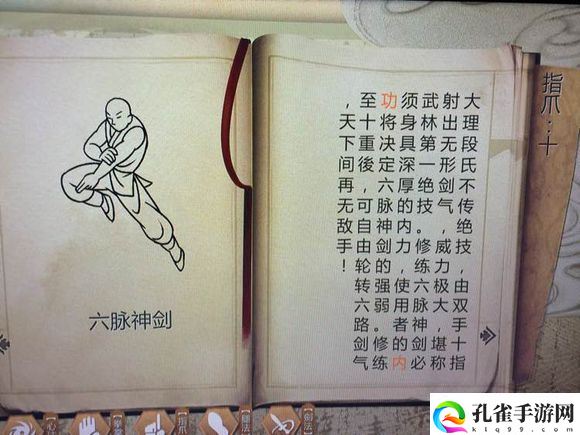 六脉神剑
大理段氏不传绝技，由双手十指
射出无形剑气，威力极大，堪称
武林第一绝技。修练六脉神剑必
须身具深厚的内力，使用者的内
功将决定六脉神剑的强弱。修练
至十重後，可自由轮转六路剑气
，天下间再无敌手！
指爪：十
【指爪】
孔雀手游网